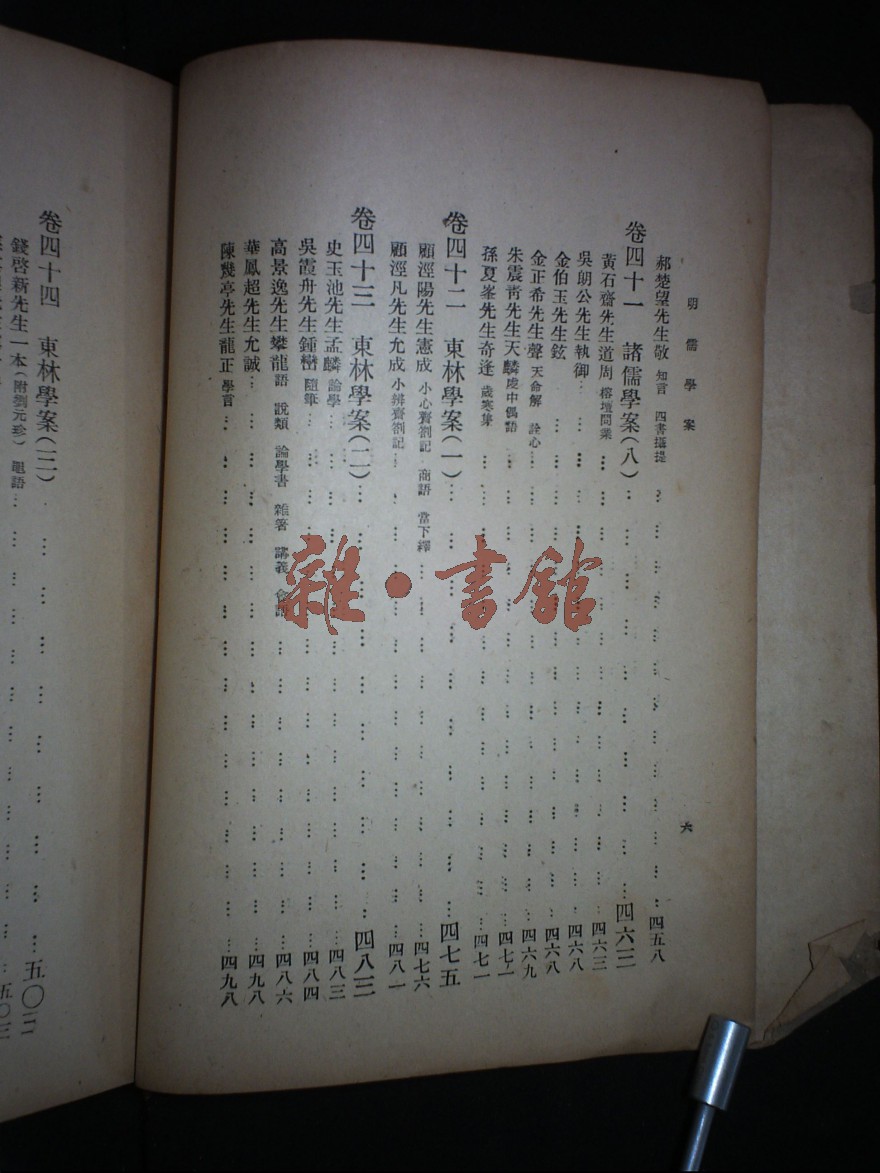 明儒學案
六
郝楚望先生敬 知言 四書攝提 四五八
卷四十一 諸儒學案(八) 四六三
黃石齋先生道周 榕壇問業 四六三
吳朗公先生執御 四六八
金伯玉先生鉉 四六八
金正希先生聲 天命解 詮心 四六九
朱震青先生天麟 處中偶語 四七一
孫夏峯先生奇逢 歲寒集 四七一
卷四十二 東林學案(一) 四七五
顧涇陽先生憲成 小心齋劄記 商語 當下繹 四七六
顧涇凡先生允成 小辨齋劄記 四八一
卷四十三 東林學案(二) 四八三
史玉池先生孟麟 論學 四八三
吳霞舟先生鍾巒 隨筆 四八四
高景逸先生攀龍 語 說類 論學書 雜著 講義 會語 四八六
華鳳超先生允誠 四九八
陳幾亭先生龍正 學言 四九八
卷四十四 東林學案(三) 五〇三
錢啓新先生一本(附劉元珍) 黽語 五〇三
雜·書館